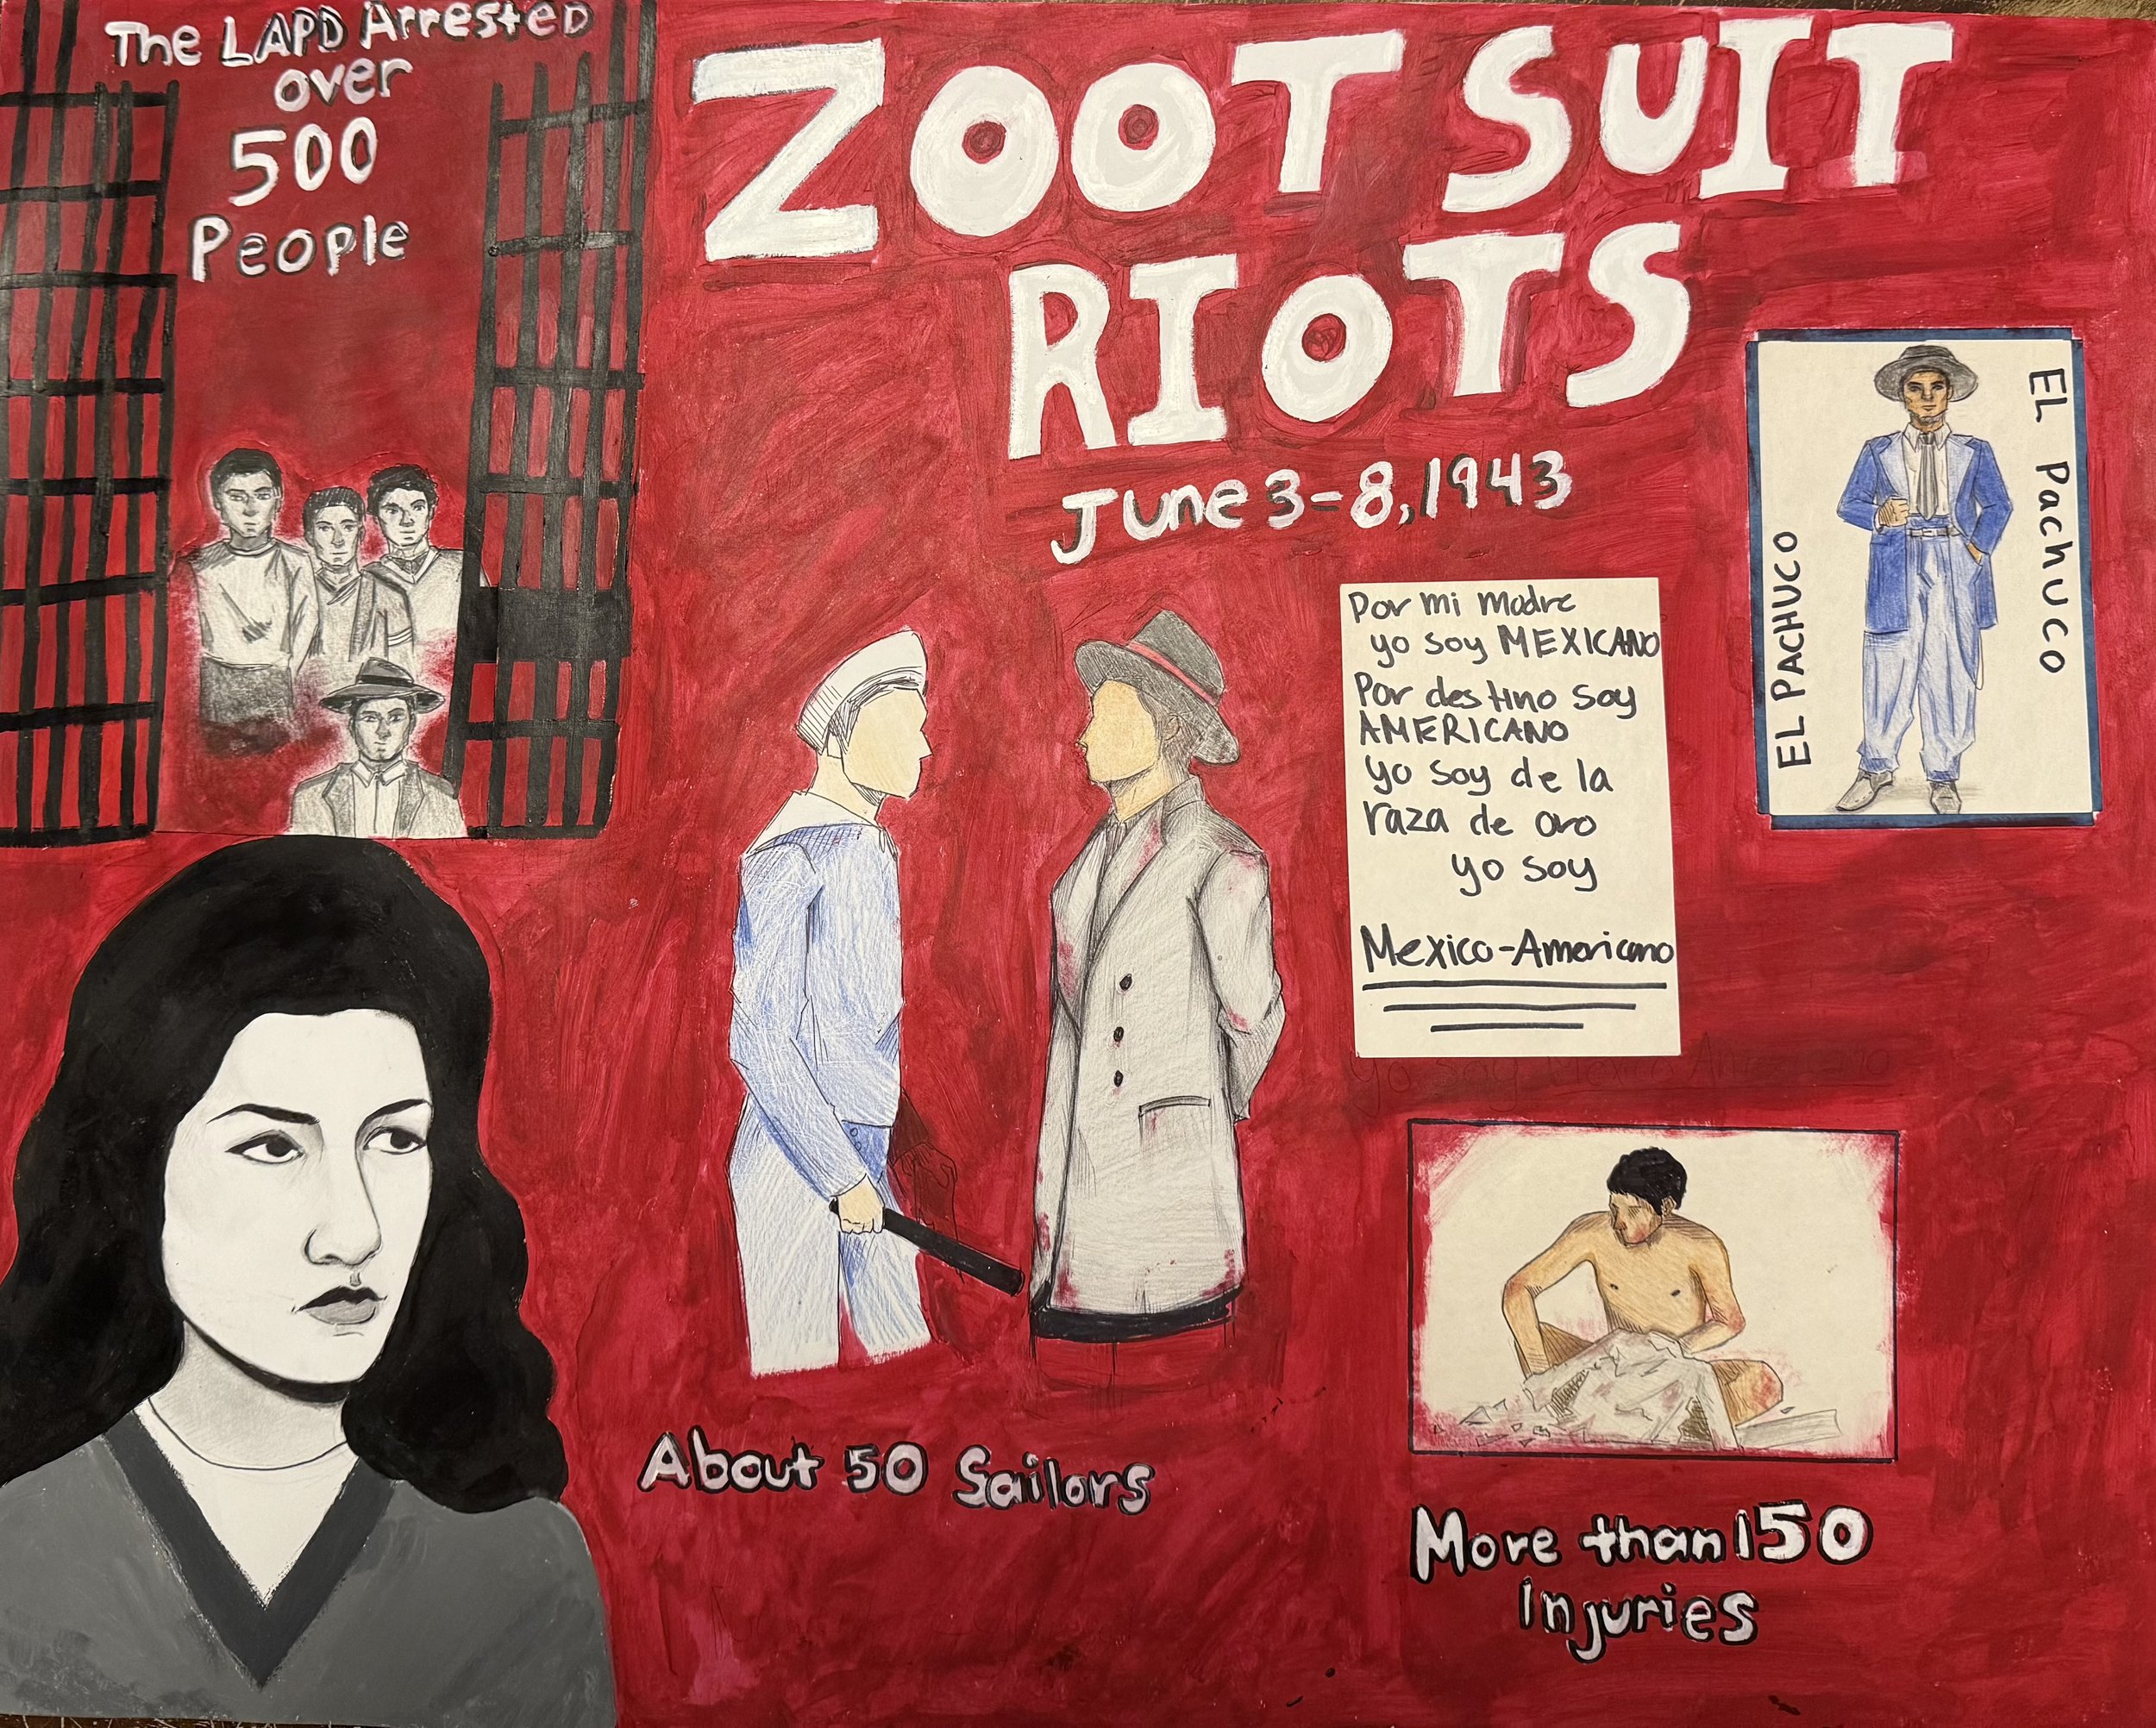 The LAPD Arrested
over
500
People
ZOOT SUIT
RIOTS
June 3-8, 1943
EL PACHUCO
EL PachUCO
Por mi madre
yo soy MEXICANO
Por destino soy
AMERICANO
yo soy de la
raza de oro
yo soy
Mexico-Americano
yo soy Mexico Americano
About 50 Sailors
More than 150
Injuries